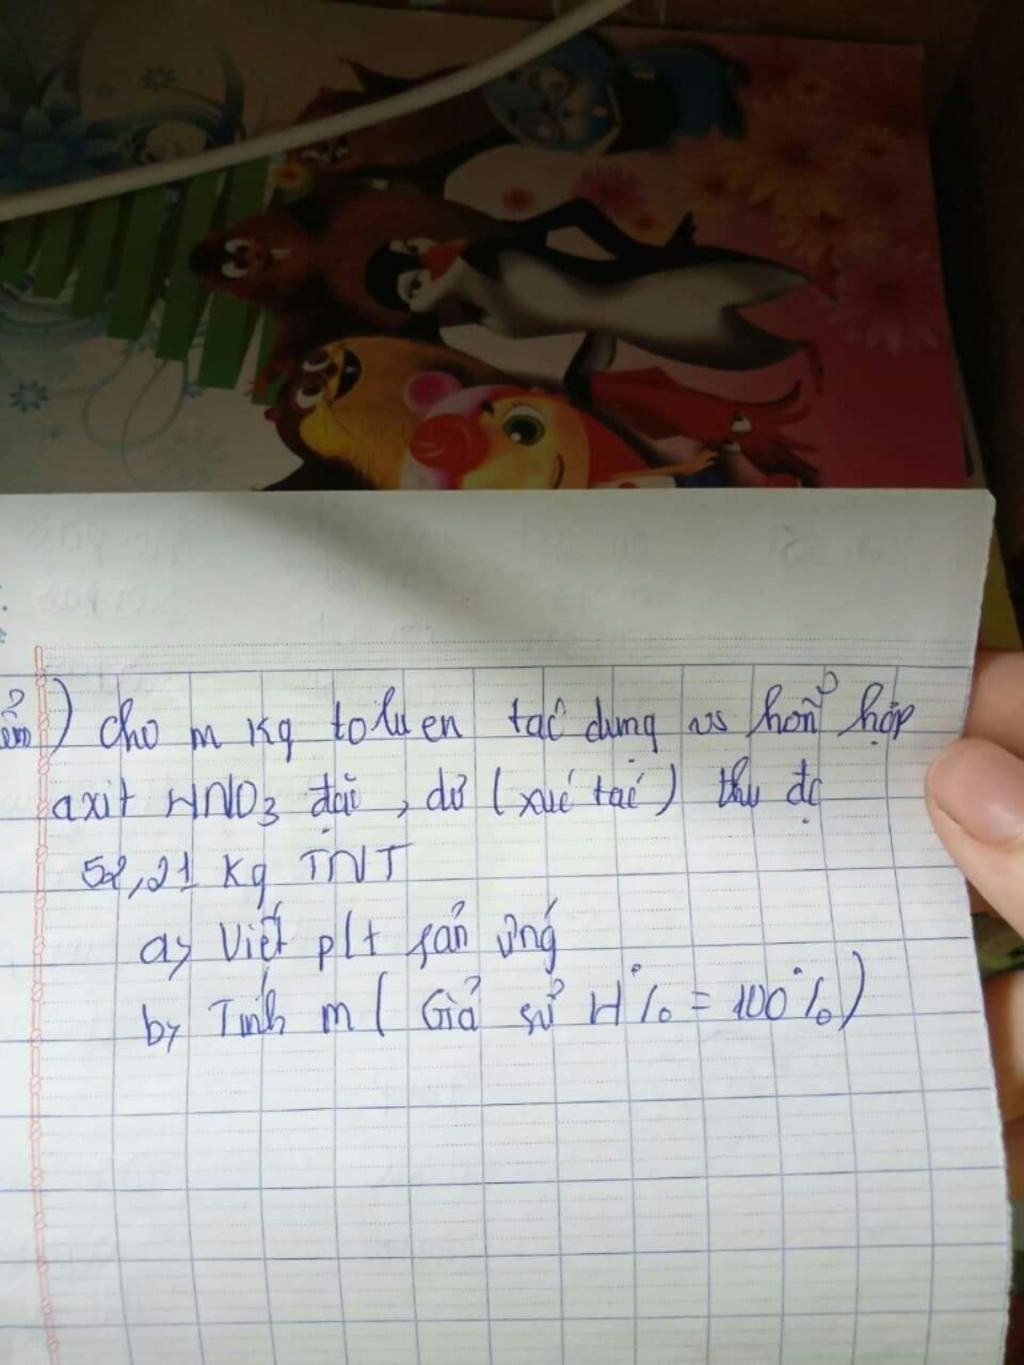 ) Cho m Kg toluen tác dụng vs hỗn hợp
axit HNO3 đặc, dư (xúc tác) thu đc
52,21 Kg TNT
a) Viết ptt phản ứng
b) Tính m ( Giả sử H% = 100%)